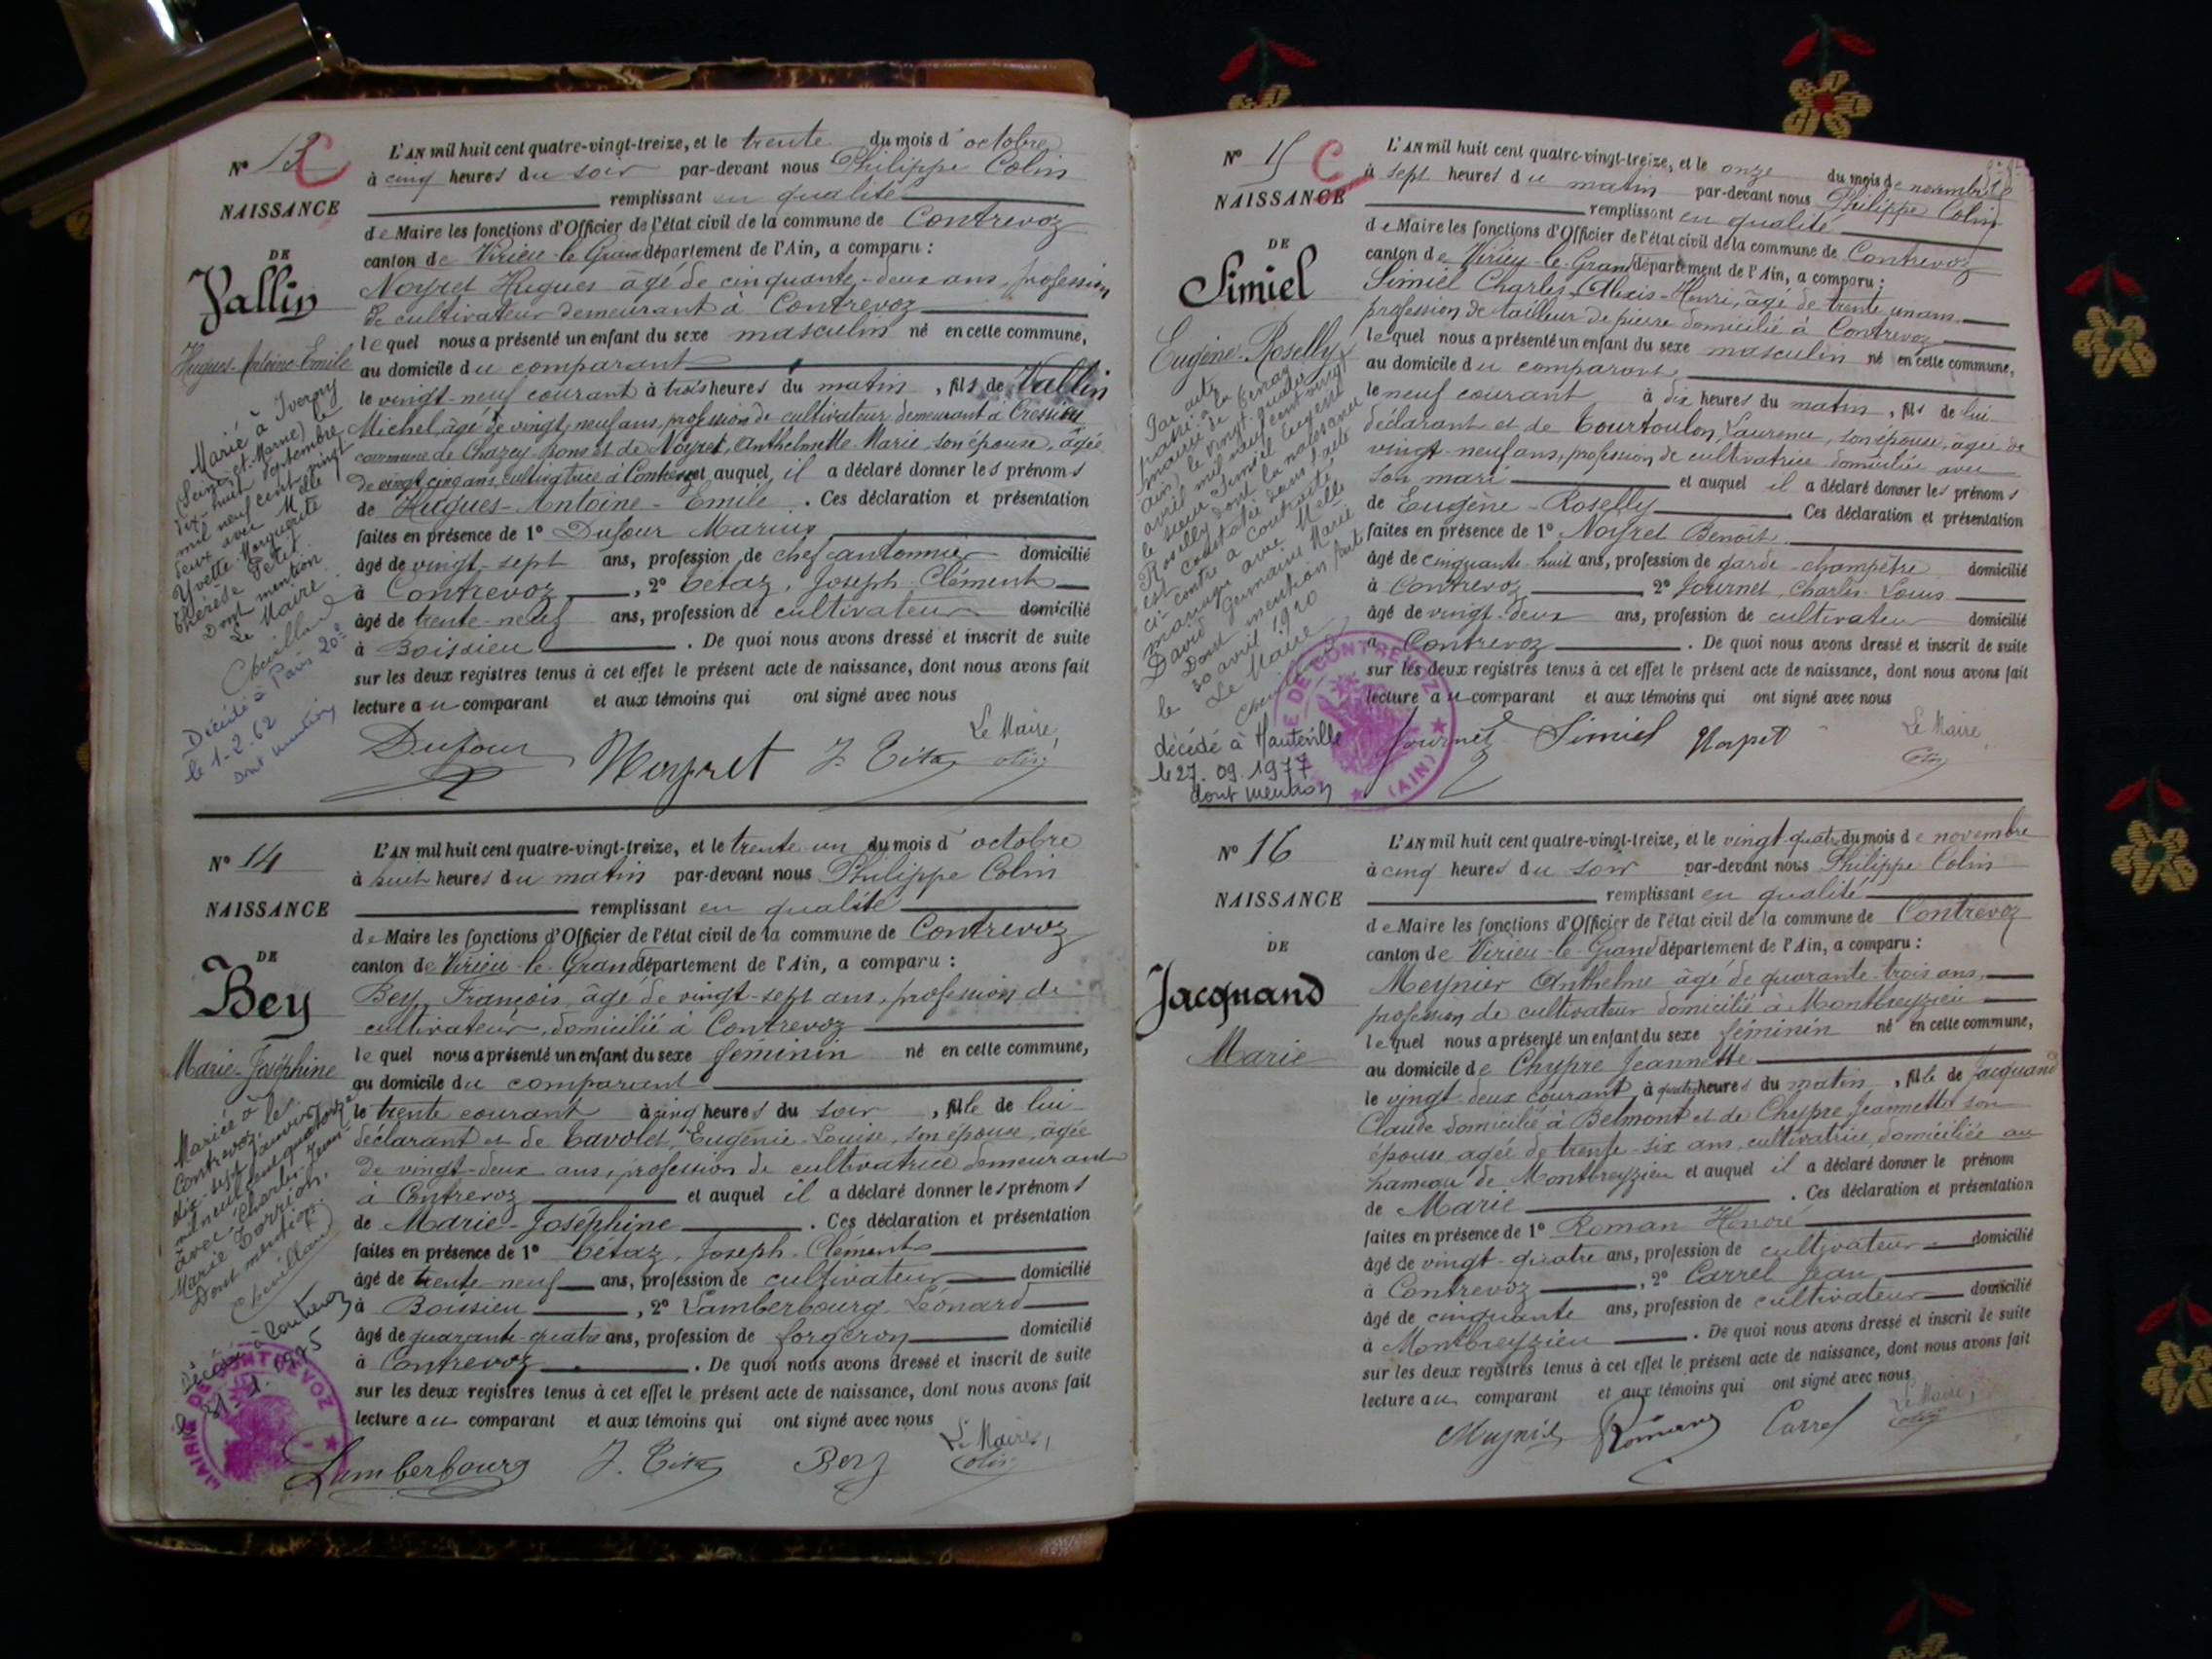 Nº 13 C
NAISSANCE
DE
Vallin
Hugues-Antoine-Emile
Marié à Iverny
(Seine-et-Marne) le
dix-huit septembre
mil neuf cent vingt
deux avec Melle
Yvette Marguerite
Thérèse Petet
Dont mention
Le Maire
Chevilland
Décédé à Paris 20e
le 1-2-62
dont mention
L'AN mil huit cent quatre-vingt-treize, et le trente du mois d'octobre
à cinq heures du soir par-devant nous Philippe Colin
remplissant en qualité
de Maire les fonctions d'Officier de l'état civil de la commune de Contrevoz
canton de Virieu-le-Grand département de l'Ain, a comparu :
Noyret Hugues âgé de cinquante-deux ans, profession
de cultivateur demeurant à Contrevoz
lequel nous a présenté un enfant du sexe masculin né en cette commune,
au domicile du comparant
le vingt-neuf courant à trois heures du matin, fils de Vallin
Michel, âgé de vingt neuf ans, profession de cultivateur demeurant à Cressieu
commune de Chazey-Bons et de Noyret, Anthelmette-Marie, son épouse, âgée
de vingt cinq ans, cultivatrice à Contrevoz et auquel il a déclaré donner les prénoms
de Hugues-Antoine-Emile. Ces déclaration et présentation
faites en présence de 1º Dufour Marius
âgé de vingt-sept ans, profession de chef cantonnier domicilié
à Contrevoz, 2º Tétaz, Joseph-Clément
âgé de trente-neuf ans, profession de cultivateur domicilié
à Boissieu. De quoi nous avons dressé et inscrit de suite
sur les deux registres tenus à cet effet le présent acte de naissance, dont nous avons fait
lecture au comparant et aux témoins qui ont signé avec nous
Le Maire,
Dufour Noyret J. Tétaz Colin
Nº 14
NAISSANCE
DE
Bey
Marie-Joséphine
Mariée à
Contrevoz, le
dix-sept janvier
mil neuf cent quatorze
avec Charles-Jean-
Marie Torrion.
Dont mention.
Chevilland
Décédée à Contrevoz
MAIRIE DE CONTREVOZ
L'AN mil huit cent quatre-vingt-treize, et le trente un du mois d'octobre
à huit heures du matin par-devant nous Philippe Colin
remplissant en qualité
de Maire les fonctions d'Officier de l'état civil de la commune de Contrevoz
canton de Virieu-le-Grand département de l'Ain, a comparu :
Bey, François, âgé de vingt-sept ans, profession de
cultivateur, domicilié à Contrevoz
lequel nous a présenté un enfant du sexe féminin né en cette commune,
au domicile du comparant
le trente courant à cinq heures du soir, fille de lui
déclarant et de Tavolet, Eugénie-Louise, son épouse, âgée
de vingt-deux ans, profession de cultivatrice demeurant
à Contrevoz et auquel il a déclaré donner les prénoms
de Marie-Joséphine. Ces déclaration et présentation
faites en présence de 1º Tétaz, Joseph-Clément
âgé de trente-neuf ans, profession de cultivateur domicilié
à Boissieu, 2º Lamberbourg Léonard
âgé de quarante-quatre ans, profession de forgeron domicilié
à Contrevoz. De quoi nous avons dressé et inscrit de suite
sur les deux registres tenus à cet effet le présent acte de naissance, dont nous avons fait
lecture au comparant et aux témoins qui ont signé avec nous
Le Maire,
Lamberbourg J. Tétaz Bey Colin
Nº 15 C
NAISSANCE
DE
Simiel
Eugène-Roselly
Par acte
passé à la
mairie de
ain, le vingt-quatre
avril mil neuf cent vingt
le sieur Simiel Eugène
Roselly dont la naissance
est constatée dans l'acte
ci-contre a contracté
mariage avec Melle
David Germaine Marie
Dont mention faite
le 30 avril 1920
Le Maire
Chevilland
décédé à Hauteville
le 27.09.1977
dont mention
MAIRIE DE CONTREVOZ (AIN)
L'AN mil huit cent quatre-vingt-treize, et le onze du mois de novembre
à sept heures du matin par-devant nous Philippe Colin
remplissant en qualité
de Maire les fonctions d'Officier de l'état civil de la commune de Contrevoz
canton de Virieu-le-Grand département de l'Ain, a comparu :
Simiel Charles-Alexis-Henri, âgé de trente un ans
profession de tailleur de pierre domicilié à Contrevoz
lequel nous a présenté un enfant du sexe masculin né en cette commune,
au domicile du comparant
le neuf courant à dix heures du matin, fils de lui
déclarant et de Courtoulon, Laurence, son épouse, âgée de
vingt-neuf ans, profession de cultivatrice domiciliée avec
son mari et auquel il a déclaré donner les prénoms
de Eugène-Roselly. Ces déclaration et présentation
faites en présence de 1º Noyret Benoît
âgé de cinquante-huit ans, profession de garde-champêtre domicilié
à Contrevoz, 2º Journet, Charles-Louis
âgé de vingt-deux ans, profession de cultivateur domicilié
à Contrevoz. De quoi nous avons dressé et inscrit de suite
sur les deux registres tenus à cet effet le présent acte de naissance, dont nous avons fait
lecture au comparant et aux témoins qui ont signé avec nous
Le Maire,
Journet Simiel Noyret Colin
Nº 16
NAISSANCE
DE
Jacquand
Marie
L'AN mil huit cent quatre-vingt-treize, et le vingt-quatre du mois de novembre
à cinq heures du soir par-devant nous Philippe Colin
remplissant en qualité
de Maire les fonctions d'Officier de l'état civil de la commune de Contrevoz
canton de Virieu-le-Grand département de l'Ain, a comparu :
Meynier Anthelme âgé de quarante-trois ans,
profession de cultivateur domicilié à Montbreyzieu
lequel nous a présenté un enfant du sexe féminin né en cette commune,
au domicile de Chypre Jeannette
le vingt-deux courant, à quatre heures du matin, fille de Jacquand
Claude domicilié à Belmont et de Chypre Jeannette son
épouse agée de trente-six ans, cultivatrice, domiciliée au
hameau de Montbreyzieu et auquel il a déclaré donner le prénom
de Marie. Ces déclaration et présentation
faites en présence de 1º Roman Honoré
âgé de vingt-quatre ans, profession de cultivateur domicilié
à Contrevoz, 2º Carrel Jean
âgé de cinquante ans, profession de cultivateur domicilié
à Montbreyzieu. De quoi nous avons dressé et inscrit de suite
sur les deux registres tenus à cet effet le présent acte de naissance, dont nous avons fait
lecture au comparant et aux témoins qui ont signé avec nous
Le Maire,
Meynier Roman Carrel Colin